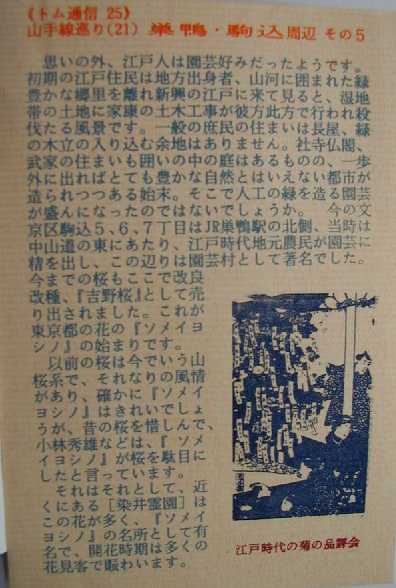 《トム通信 25》
山手線巡り(21) 巣鴨・駒込周辺 その5
思いの外、江戸人は園芸好みだったようです。
初期の江戸住民は地方出身者、山河に囲まれた緑
豊かな郷里を離れ新興の江戸に来て見ると、湿地
帯の土地に家康の土木工事が彼方此方で行われ殺
伐たる風景です。一般の庶民の住まいは長屋、緑
の木立の入り込む余地はありません。社寺仏閣、
武家の住まいも囲いの中の庭はあるものの、一歩
外に出ればとても豊かな自然とはいえない都市が
造られつつある始末。そこで人工の緑を造る園芸
が盛んになったのではないでしょうか。 今の文
京区駒込5、6、7丁目はJR巣鴨駅の北側、当時は
中山道の東にあたり、江戸時代地元農民が園芸に
精を出し、この辺りは園芸村として著名でした。
今までの桜もここで改良
改種、『吉野桜』として売
り出されました。これが
東京都の花の『ソメイヨ
シノ』の始まりです。
以前の桜は今でいう山
桜系で、それなりの風情
があり、確かに『ソメイ
ヨシノ』はきれいでしょ
うが、昔の桜を惜しんで、
小林秀雄などは、『ソメ
イヨシノ』が桜を駄目に
したと言っています。
それはそれとして、近
くにある［染井霊園］は
この花が多く、『ソメイ
ヨシノ』の名所として有
名で、開花時期は多くの
花見客で賑わいます。
江戸時代の菊の品評会